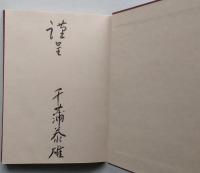 謹呈
千蒲泰雄